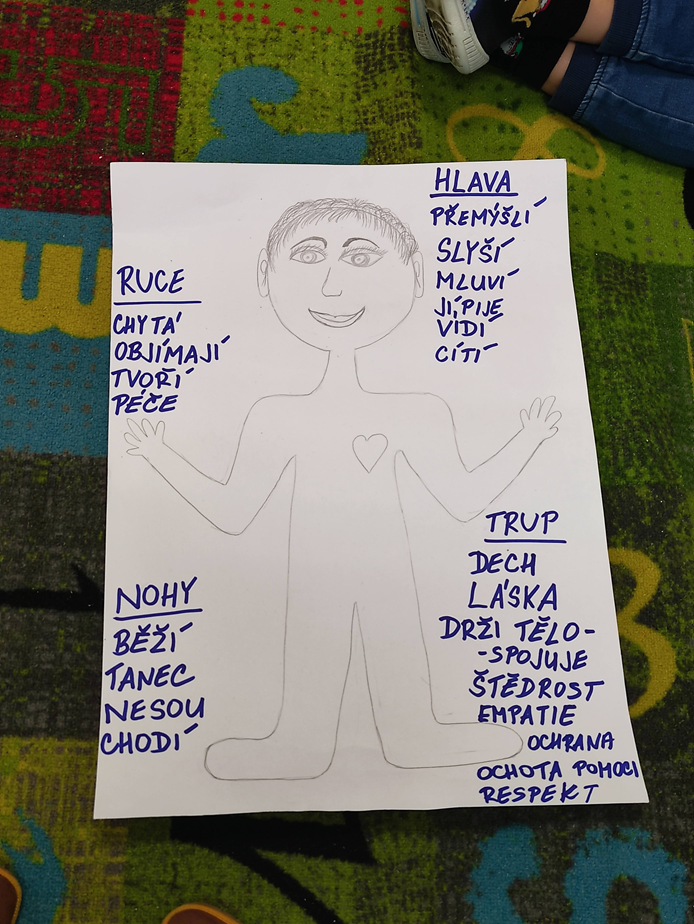 HLAVA
PŘEMÝŠLÍ
SLYŠÍ
MLUVÍ
JÍ, PIJE
VIDÍ
CÍTÍ
RUCE
CHYTÁ
OBJÍMAJÍ
TVOŘÍ
PÉČE
TRUP
DECH
LÁSKA
DRŽI TĚLO-
-SPOJUJE
ŠTĚDROST
EMPATIE
OCHRANA
OCHOTA POMOCI
RESPEKT
NOHY
BĚŽÍ
TANEC
NESOU
CHODÍ